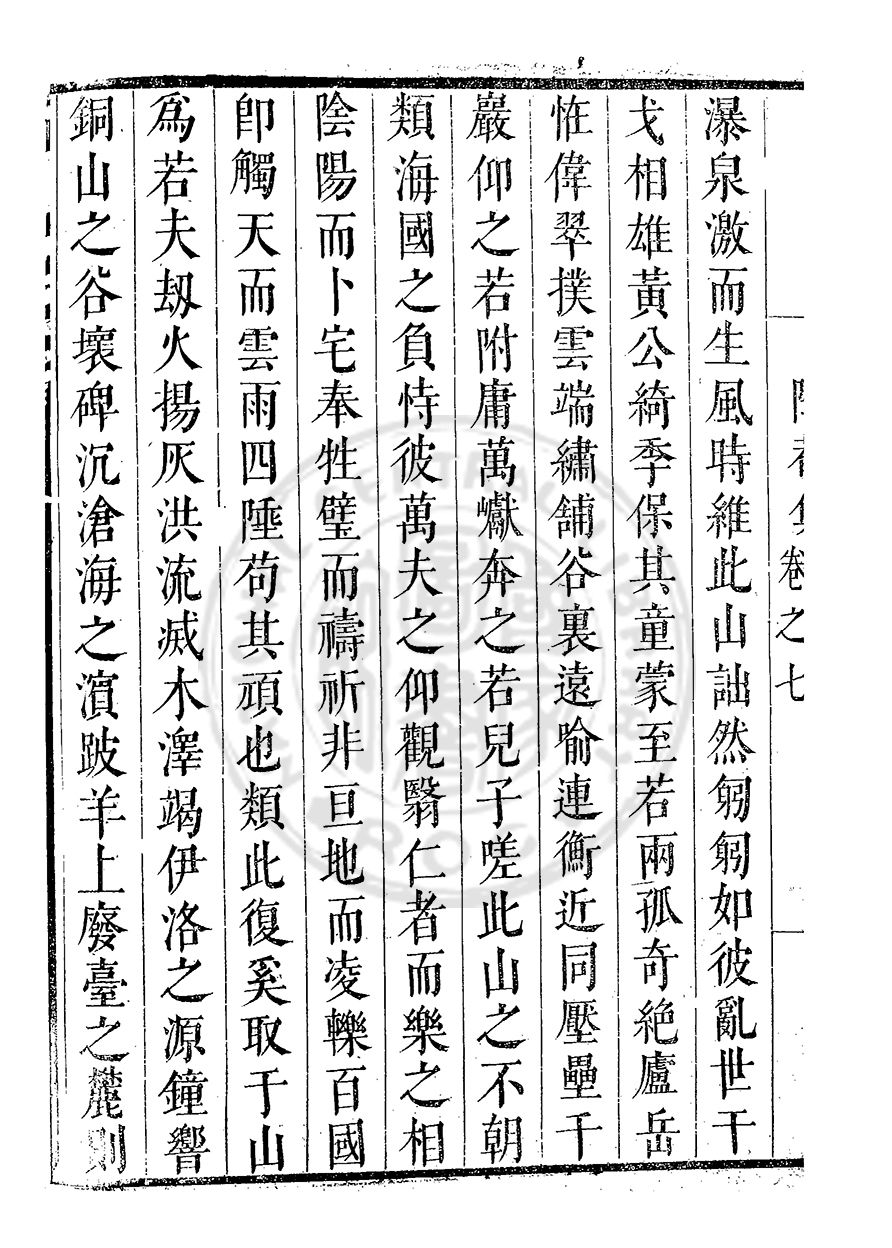 卷之七
瀑泉激而生風時維此山詘然躬躬如彼亂世干
戈相雄黃公綺季保其童蒙至若兩孤奇絶廬岳
恠偉翠撲雲端繡舖谷裏遠喻連衡近同壓壘千
巖仰之若附庸萬巘奔之若兒子嗟此山之不朝
類海國之負恃彼萬夫之仰觀翳仁者而樂之相
陰陽而卜宅奉牲璧而禱祈非亘地而凌轢百國
卽觸天而雲雨四陲苟其頑也類此復奚取于山
爲若夫刼火揚灰洪流烕木澤竭伊洛之源鐘響
銅山之谷壞碑沉滄海之濵跛羊上廢臺之麓則